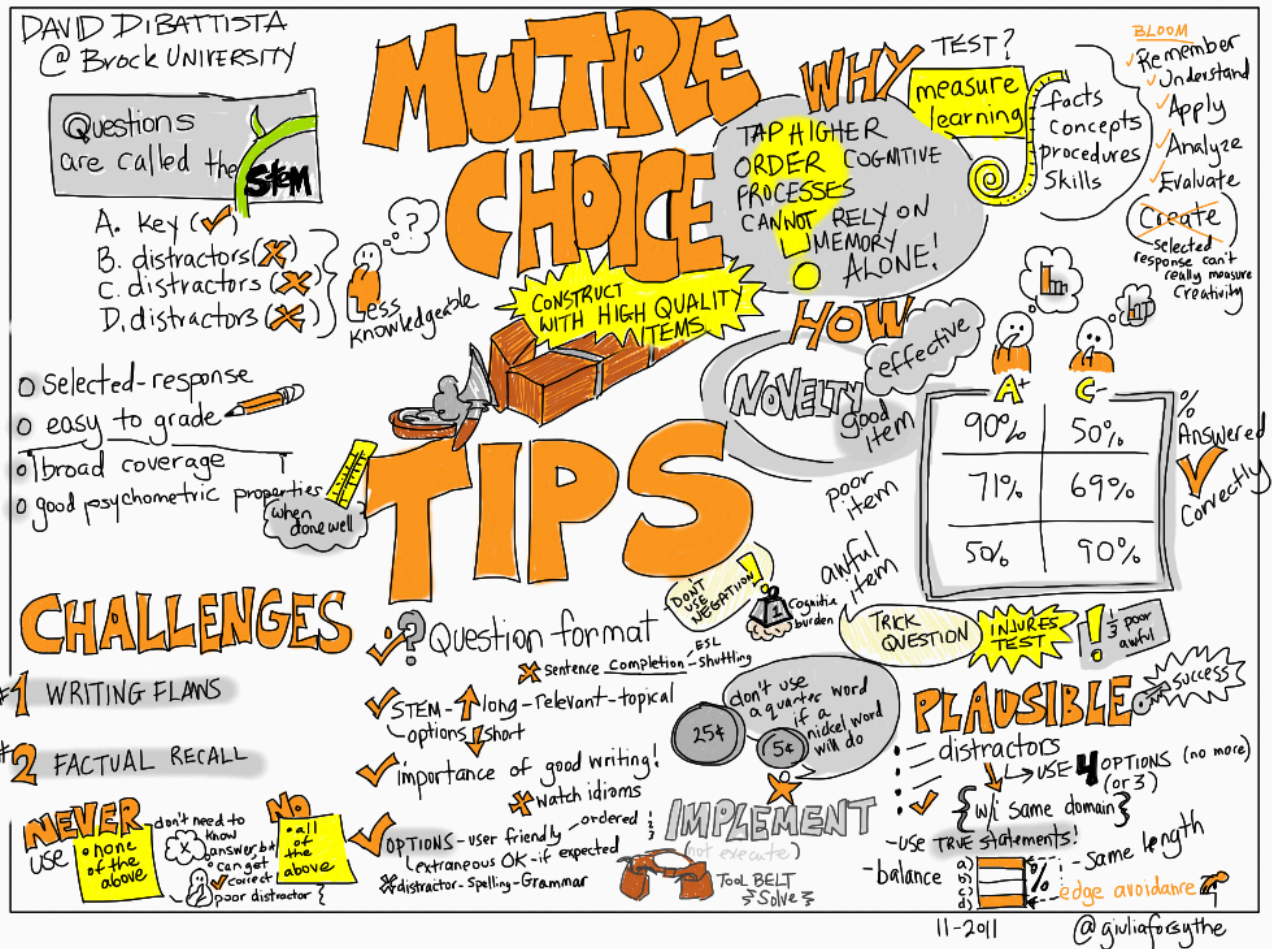 DAVID DIBATTISTA
@ BROCK UNIVERSITY
Questions
are called the
STEM
A. Key (✓)
B. distractors (X)
C. distractors (X)
D. distractors (X)
?
Less
knowledgeable
selected-response
easy to grade
broad coverage
good psychometric properties
when
done well
MULTIPLE
CHOICE
CONSTRUCT
WITH HIGH QUALITY
ITEMS
TIPS
WHY
TEST?
measure
learning
facts
concepts
procedures
skills
TAP HIGHER
ORDER COGNITIVE
PROCESSES
CANNOT RELY ON
MEMORY
ALONE!
BLOOM
Remember
Understand
Apply
Analyze
Evaluate
Create
selected
response can't
really measure
creativity
HOW
effective
NOVELTY
good
item
poor
item
awful
item
A+ C-
90% 50%
71% 69%
50% 90%
%
Answered
Correctly
TRICK
QUESTION
INJURES
TEST
! 1/3 poor
awful
CHALLENGES
#1 WRITING FLAWS
#2 FACTUAL RECALL
NEVER
use
none
of the
above
don't need to
know
answer, but
can get
correct
poor distractor
NO
all
of
the
above
? Question format
DON'T
USE
NEGATION!
1
Cognitive
burden
Sentence Completion - Shuttling
ESL
STEM - long - relevant - topical
options short
importance of good writing!
watch idioms
OPTIONS - user friendly
ordered 1 2 3
extraneous OK - if expected
distractor - Spelling - Grammar
25¢
5¢
don't use
a quarter word
if a
nickel word
will do
IMPLEMENT
(not execute)
TOOL BELT
Solve
PLAUSIBLE
success
distractors
USE 4 OPTIONS (no more)
(or 3)
{w/i same domain}
-use TRUE statements!
-balance
a)
b)
c)
d)
%
-same length
edge avoidance
11-2011
@giuliaforsythe